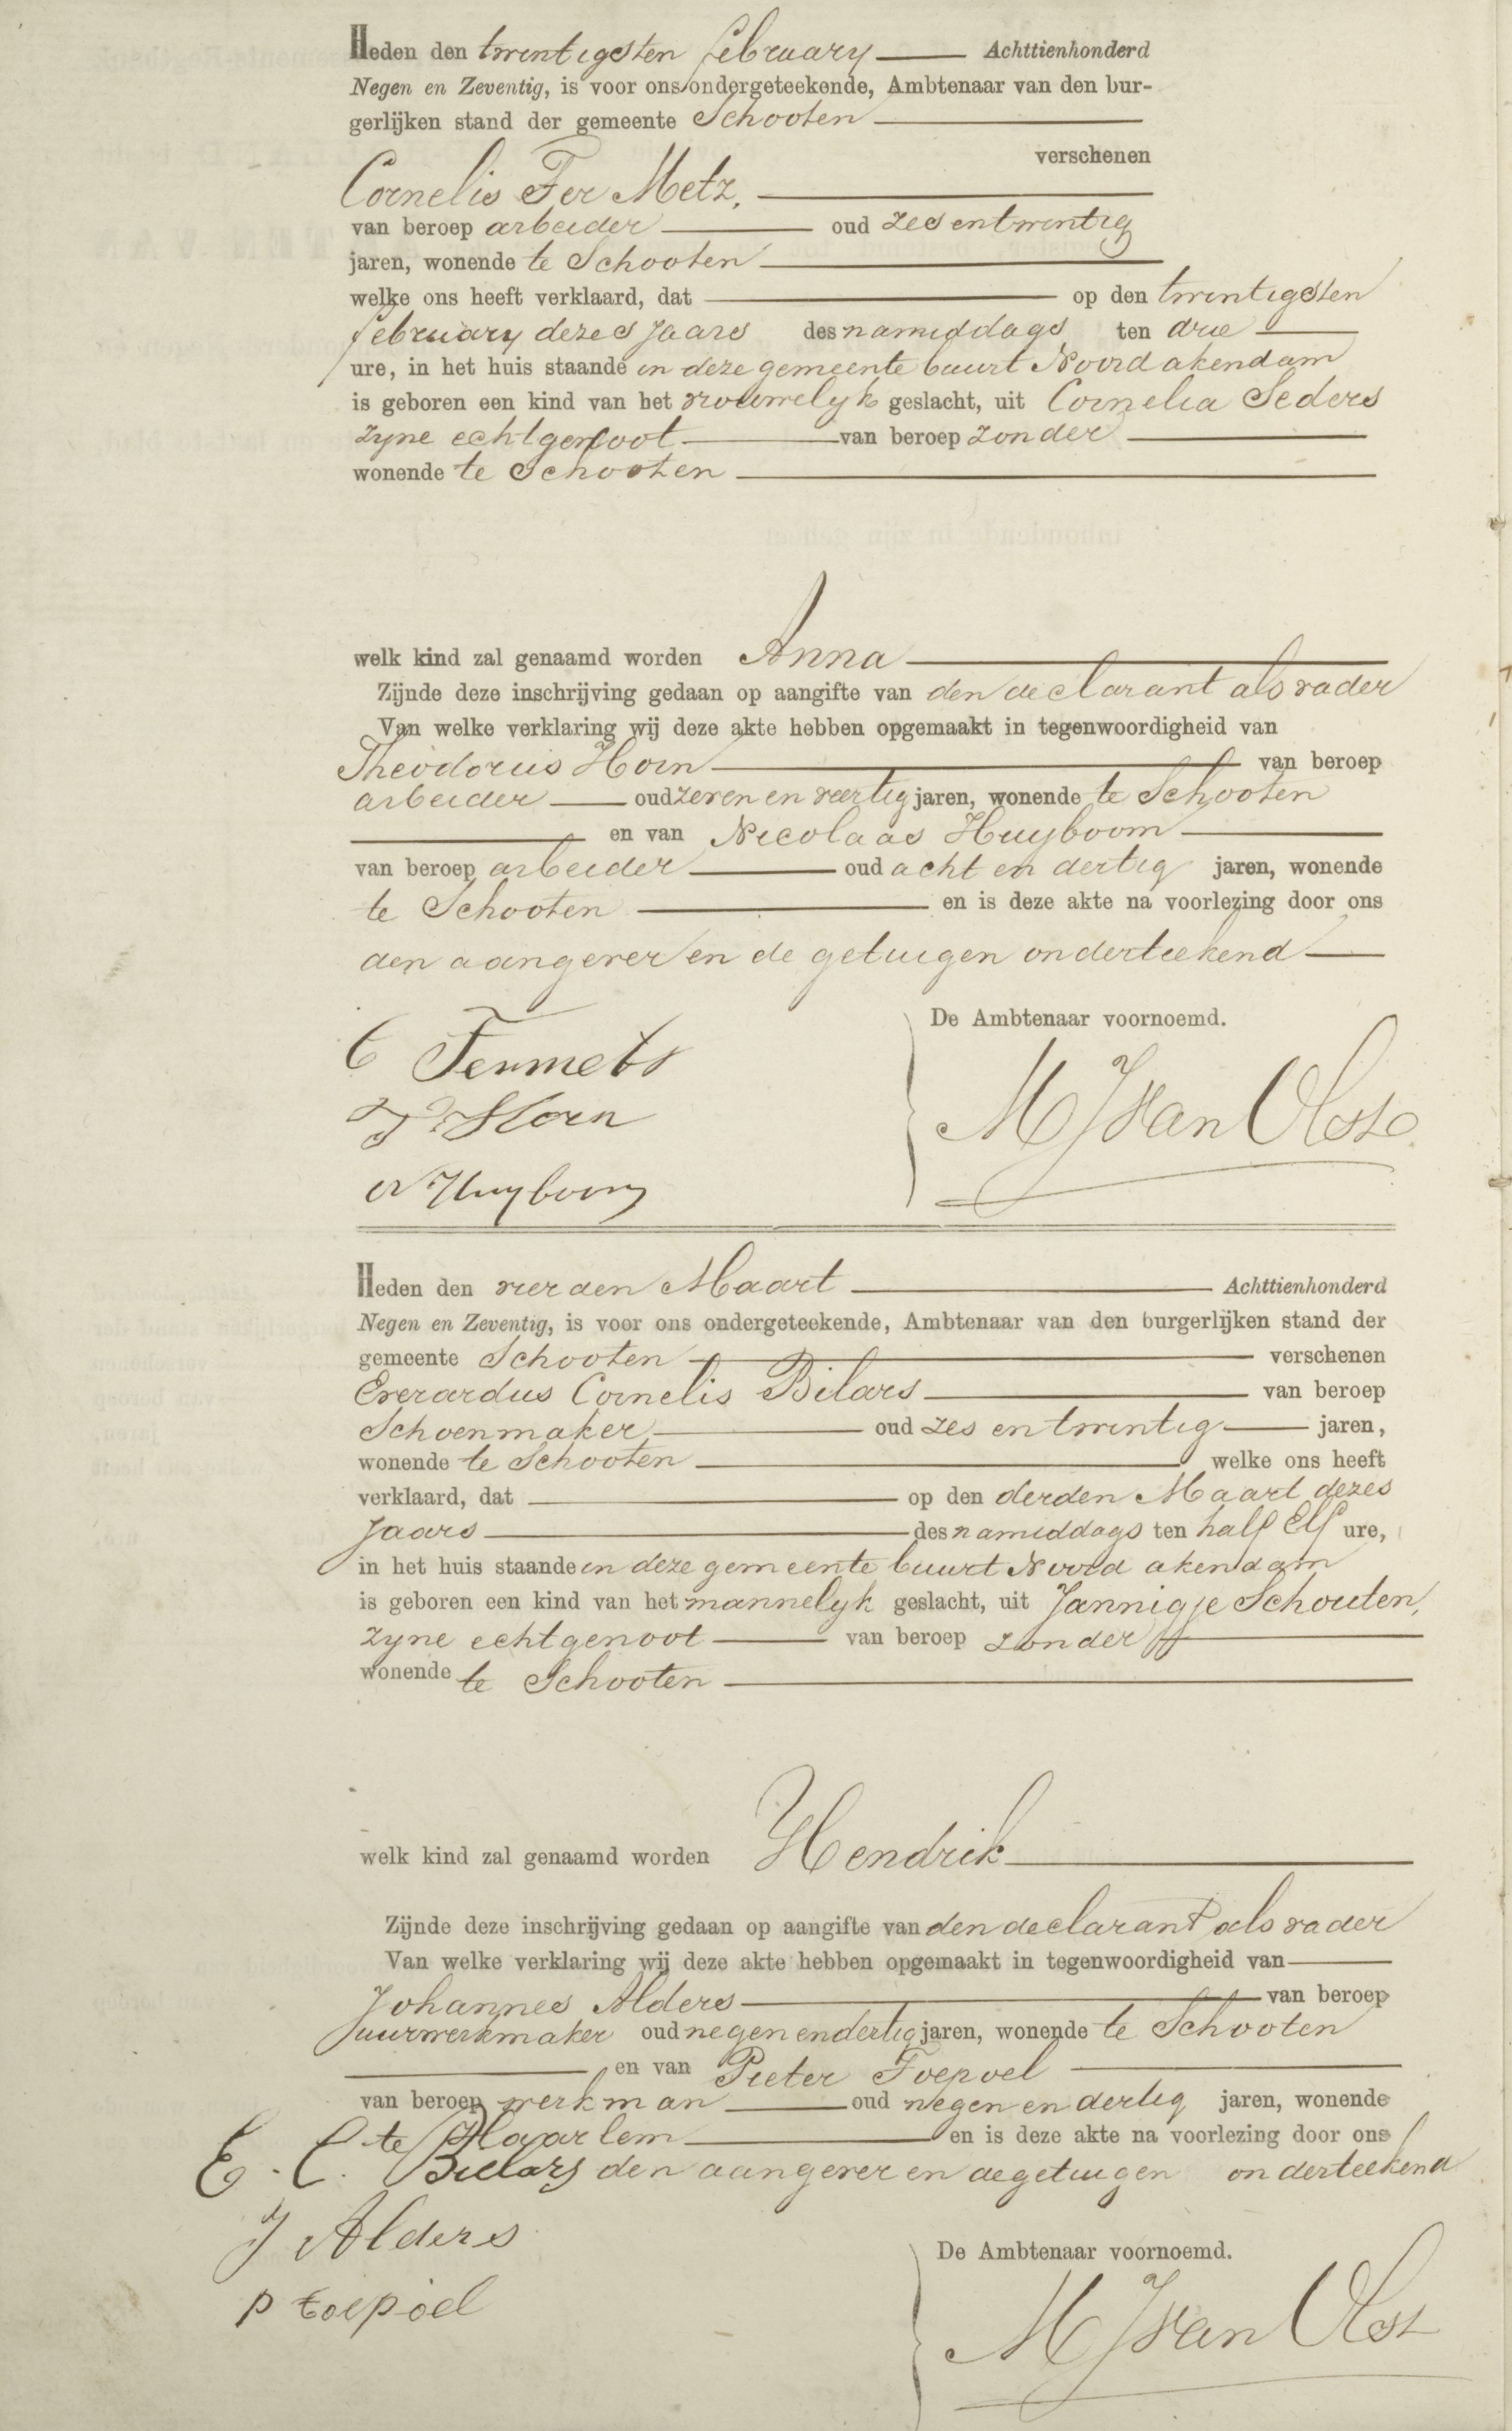 Heden den twintigsten february Achttienhonderd
Negen en Zeventig, is voor ons ondergeteekende, Ambtenaar van den bur-
gerlijken stand der gemeente Schooten
verschenen
Cornelis Ter Metz,
van beroep arbeider oud zes en twintig
jaren, wonende te Schooten
welke ons heeft verklaard, dat op den twintigsten
february dezes jaars des namiddags ten drie
ure, in het huis staande in deze gemeente buurt Noord akendam
is geboren een kind van het vrouwelyk geslacht, uit Cornelia Seders
zyne echtgenoot van beroep zonder
wonende te Schooten
welk kind zal genaamd worden Anna
Zijnde deze inschrijving gedaan op aangifte van den declarant als vader
Van welke verklaring wij deze akte hebben opgemaakt in tegenwoordigheid van
Theodorus Horn van beroep
arbeider oud zeven en veertig jaren, wonende te Schooten
en van Nicolaas Huyboom
van beroep arbeider oud acht en dertig jaren, wonende
te Schooten en is deze akte na voorlezing door ons
den aangever en de getuigen onderteekend
De Ambtenaar voornoemd.
C Termets
T Horn
N Huyboom
M J Van Olst
Heden den vierden Maart Achttienhonderd
Negen en Zeventig, is voor ons ondergeteekende, Ambtenaar van den burgerlijken stand der
gemeente Schooten verschenen
Everardus Cornelis Bilars van beroep
Schoenmaker oud zes en twintig jaren,
wonende te Schooten welke ons heeft
verklaard, dat op den derden Maart dezes
jaars des namiddags ten half Elf ure,
in het huis staande in deze gemeente buurt Noord akendam
is geboren een kind van het mannelyk geslacht, uit Jannigje Schouten,
zyne echtgenoot van beroep zonder
wonende te Schooten
welk kind zal genaamd worden Hendrik
Zijnde deze inschrijving gedaan op aangifte van den declarant als vader
Van welke verklaring wij deze akte hebben opgemaakt in tegenwoordigheid van
Johannes Alders van beroep
uurwerkmaker oud negen en dertig jaren, wonende te Schooten
en van Pieter Toepoel
van beroep werkman oud negen en dertig jaren, wonende
te Haarlem en is deze akte na voorlezing door ons
E. C. Bielars den aangever en de getuigen onderteekend
J Alders
De Ambtenaar voornoemd.
P toepoel
M J Van Olst